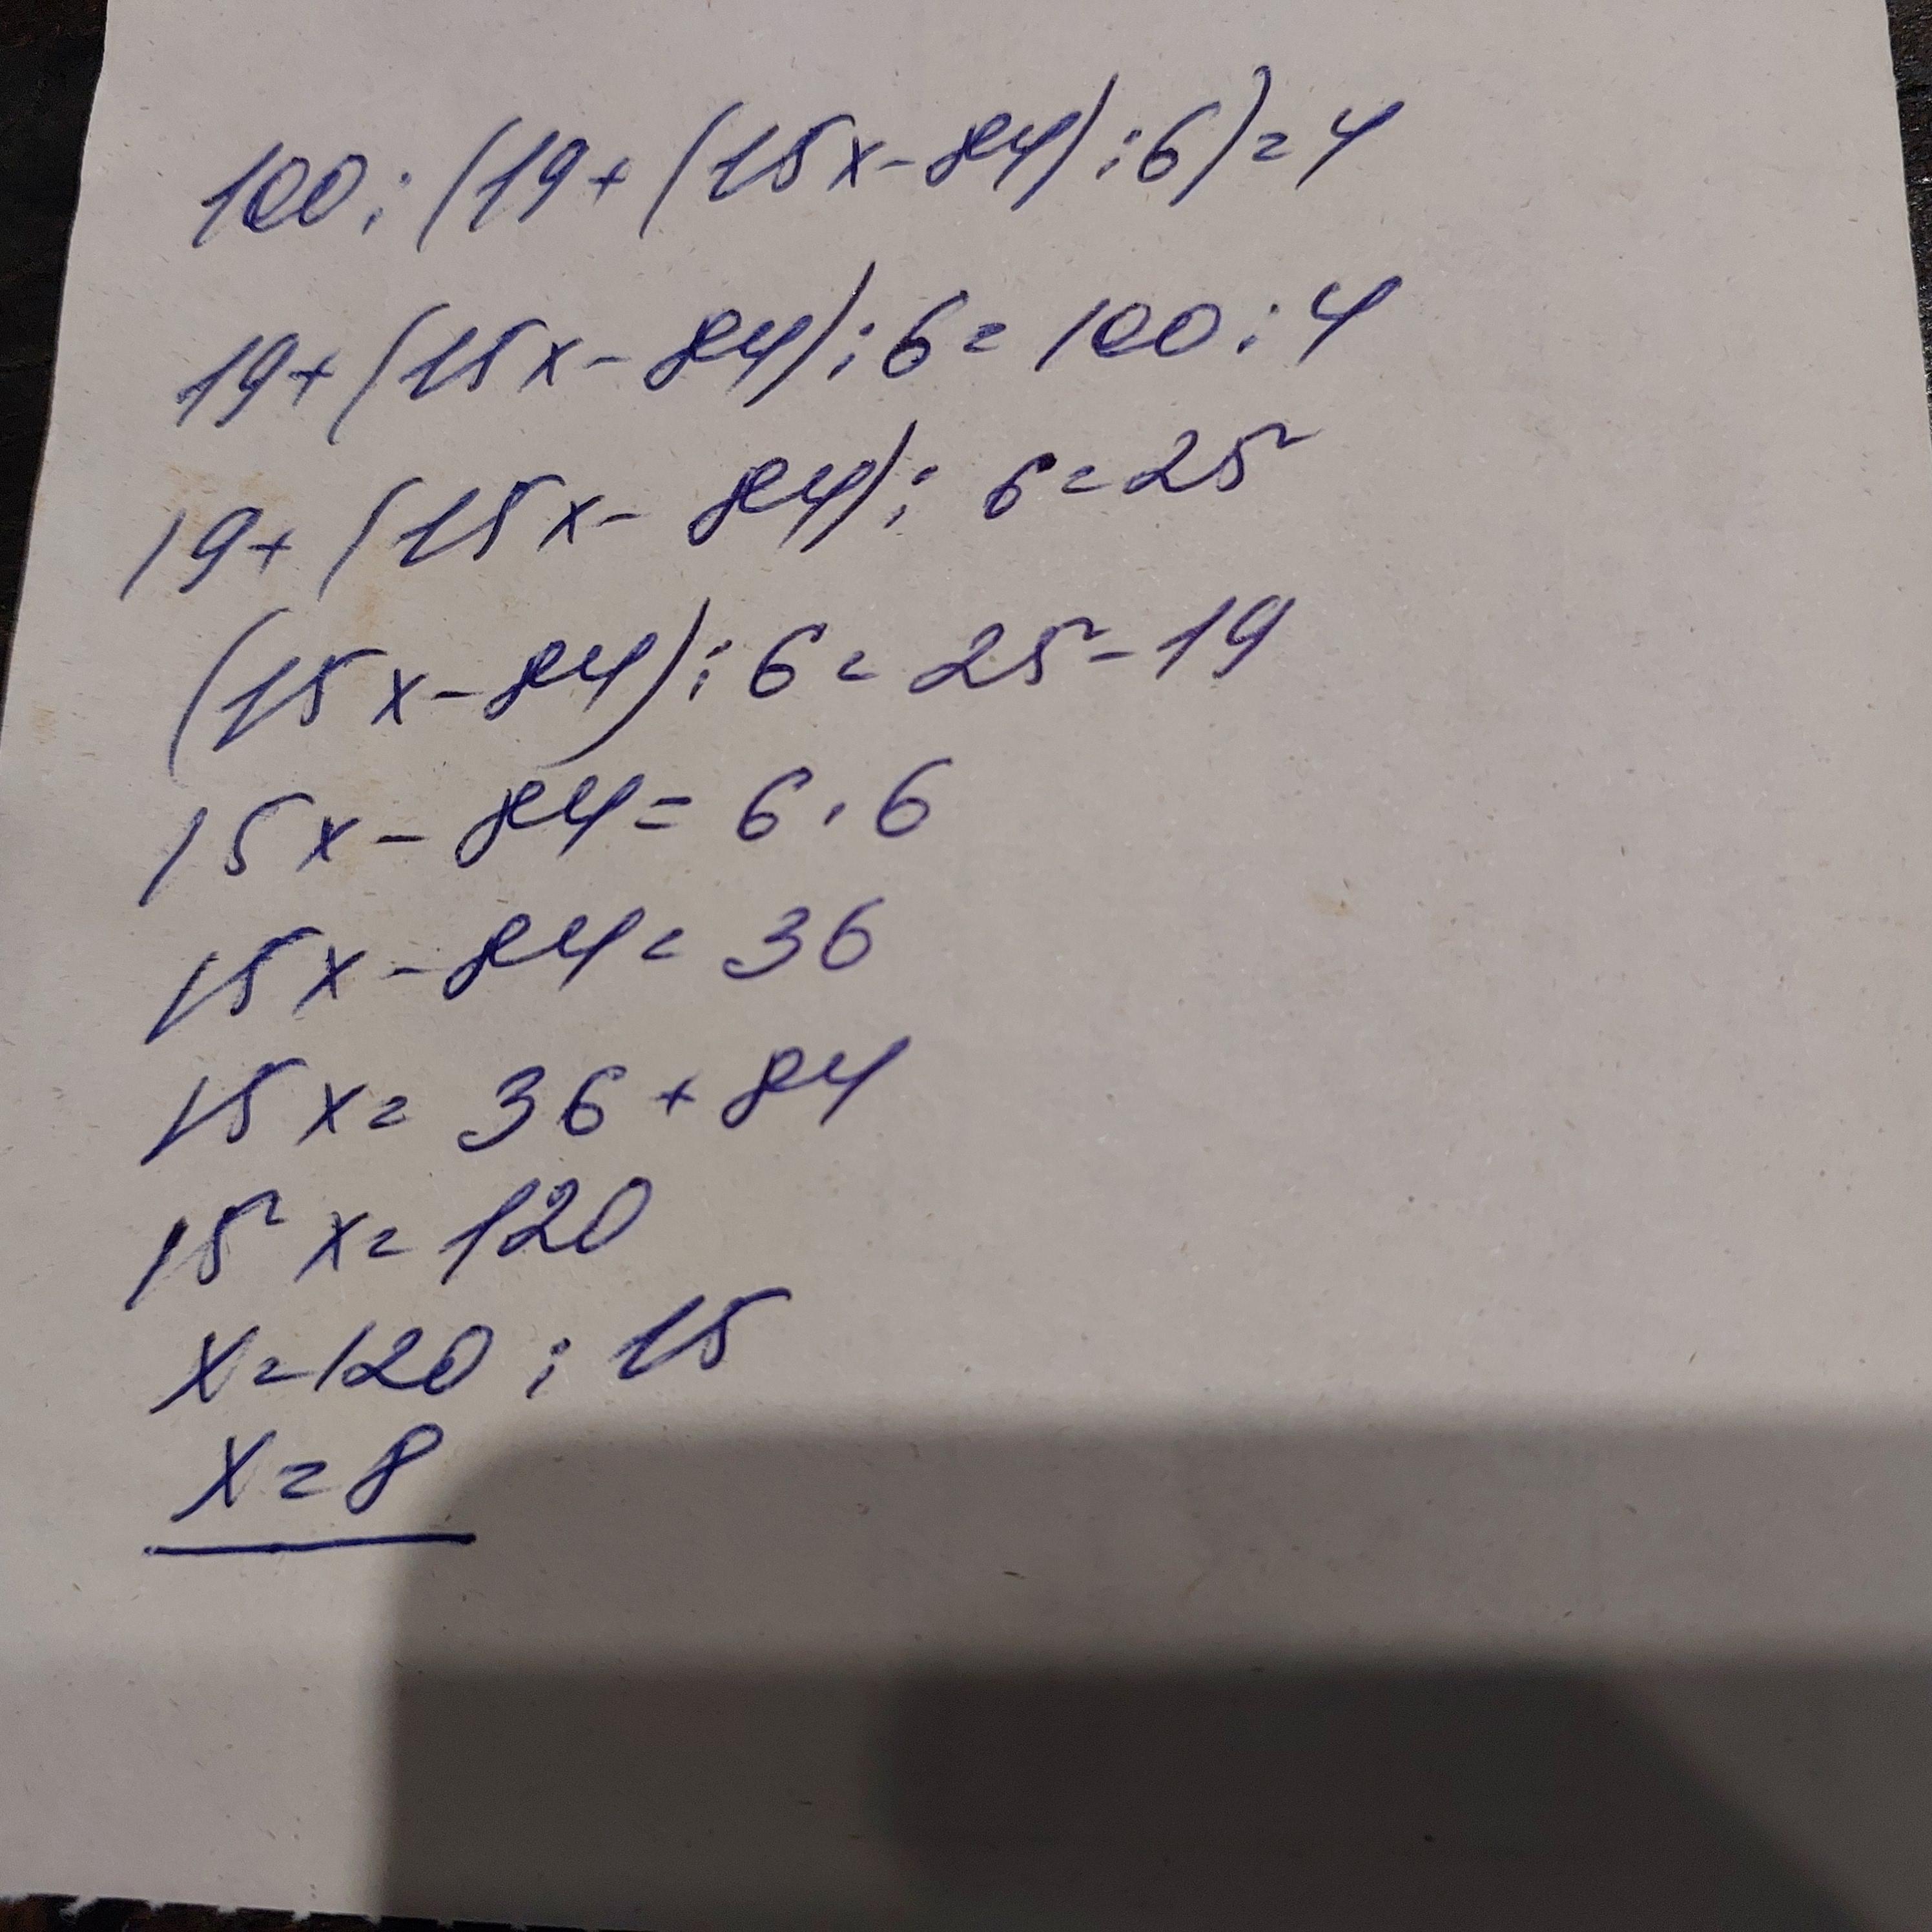 100 : (19 + (15x - 84) : 6) = 4
19 + (15x - 84) : 6 = 100 : 4
19 + (15x - 84) : 6 = 25
(15x - 84) : 6 = 25 - 19
15x - 84 = 6 · 6
15x - 84 = 36
15x = 36 + 84
15x = 120
x = 120 : 15
x = 8